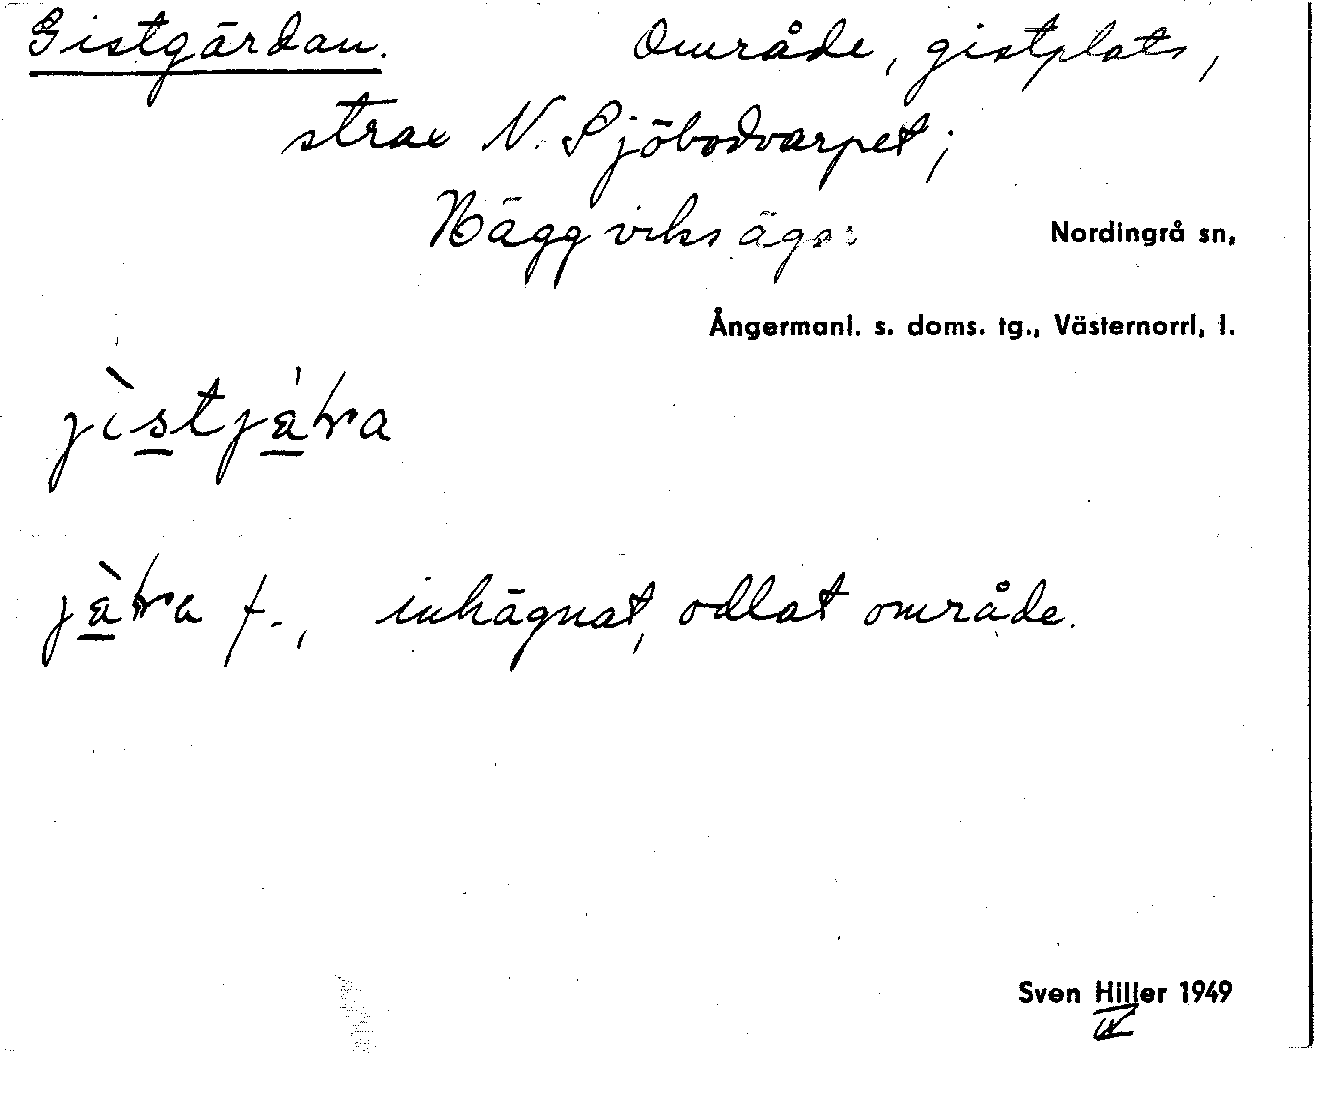 Gistgärdan. Område, gistplats,
strax N. Sjöbodvarpet;
Häggviks ägor
Nordingrå sn,
Ångermanl. s. doms. tg., Västernorrl. l.
f., inhägnat, odlat område.
Sven Hiller 1949